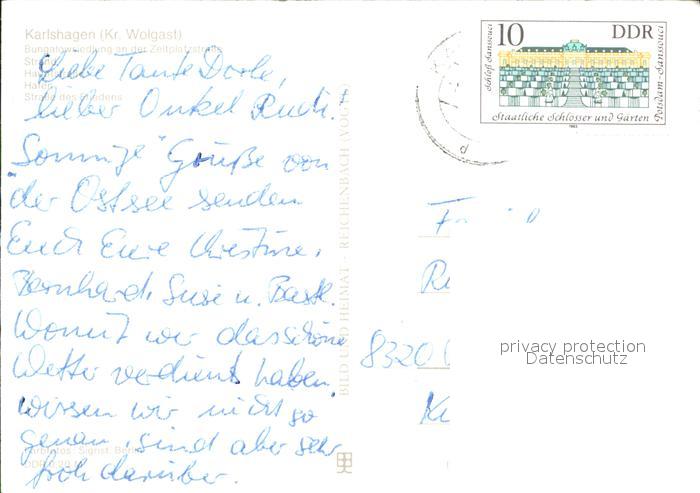 Karlshagen (Kr. Wolgast)
Bungalowsiedlung an der Zeltplatzstraße
Strand
Hafen
Straße des Friedens
Liebe Tante Dorle,
lieber Onkel Rudi!
"Sonnige" Grüße von
der Ostsee senden
Euch Eure Christine,
Bernhard, Suse u. Bastl.
Womit wir das schöne
Wetter verdient haben,
wissen wir nicht so
genau, sind aber sehr
froh darüber.
BILD UND HEIMAT · REICHENBACH (VOGTL)
10
DDR
Schloß Sanssouci
Potsdam-Sanssouci
Staatliche Schlösser und Gärten
1983
8320
privacy protection
Datenschutz